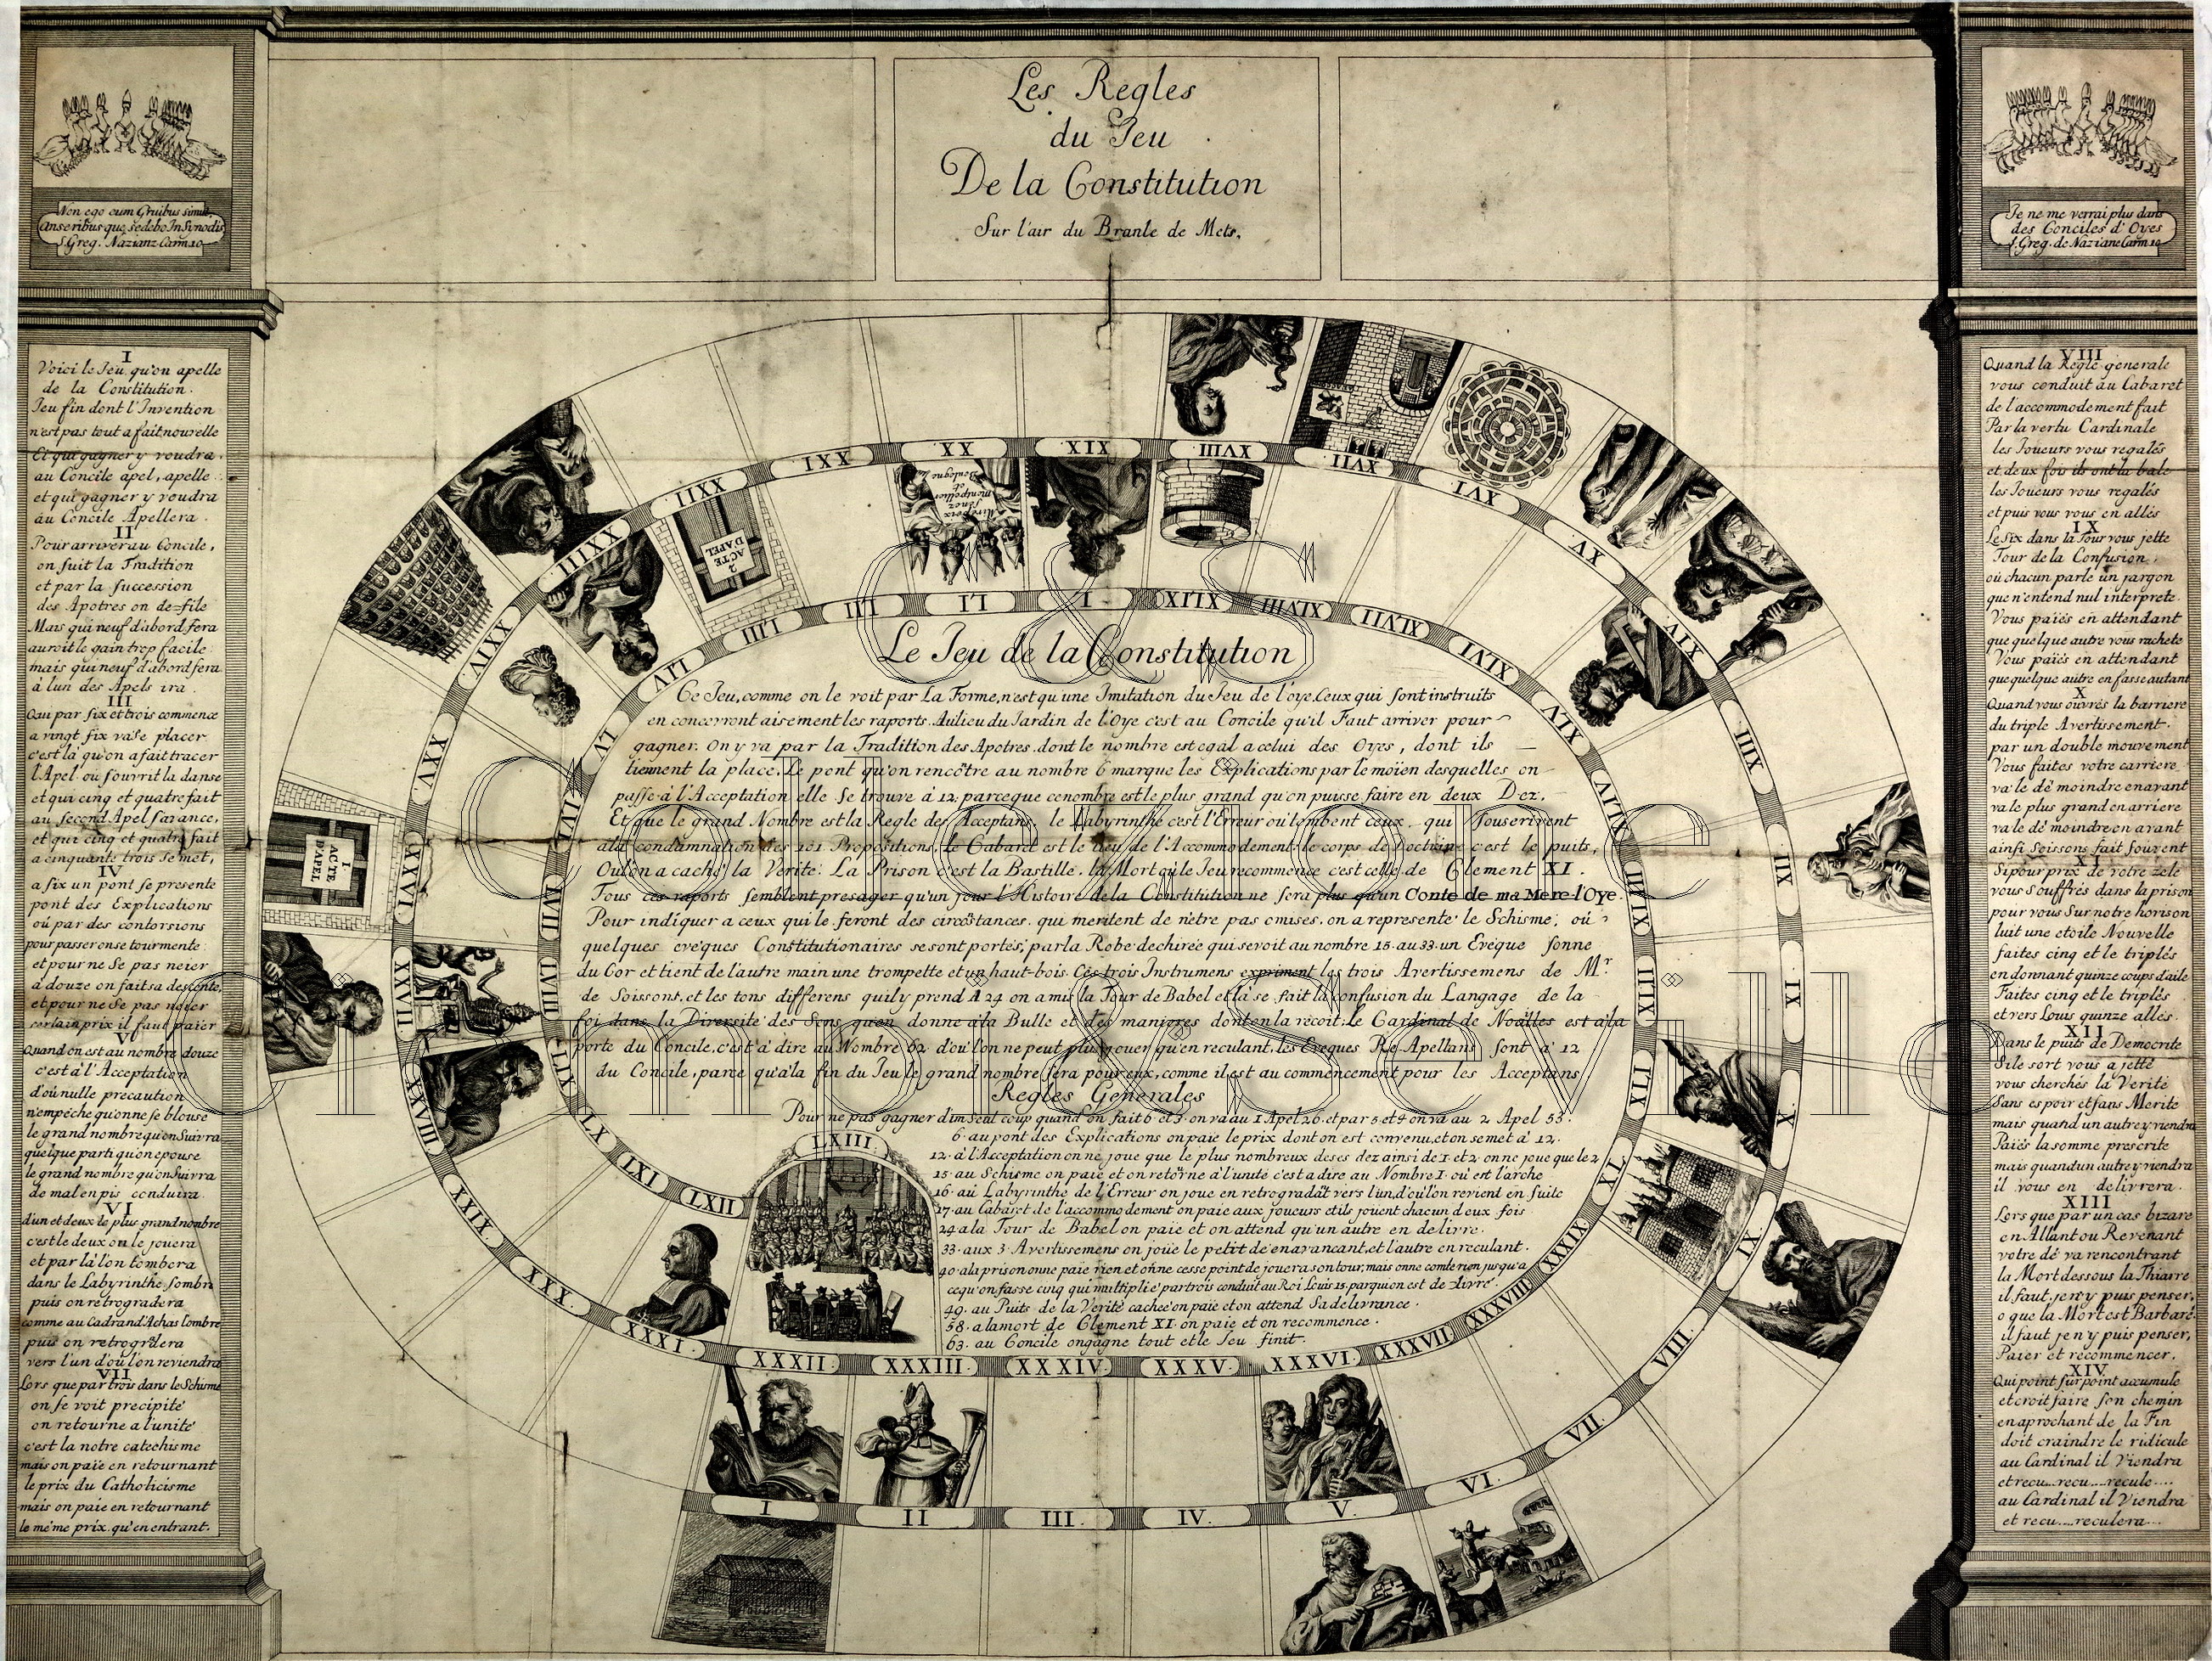 Les Regles
du Jeu
De la Constitution
Sur l'air du Branle de Mets,
Non ego cum Gruibus simul
Anseribus que sedebo In Synodis
S. Greg. Nazianz Carm 10
Je ne me verrai plus dans
des Conciles d'Oyes
S. Greg. de Nazianz Carm 10
I
Voici le Jeu qu'on apelle
de la Constitution.
Jeu fin dont l'Invention
n'est pas tout a fait nouvelle
Et qui gagner y voudra,
au Concile apel, apelle
et qui gagner y voudra
au Concile Apellera.
II
Pour arriver au Concile,
on suit la Tradition
et par la succession
des Apotres on de=file
Mais qui neuf d'abord fera
auroit le gain trop facile
mais qui neuf d'abord fera
à lun des Apels ira.
III
Qau par six et trois commence
a vingt six va se placer
c'est là qu'on a fait tracer
l'Apel où s'ouvrit la danse
et qui cinq et quatre fait
au second Apel s'avance,
et qui cinq et quatre fait
a cinquante trois se met,
IV
a six un pont se presente
pont des Explications
où par des contorsions
pour passer on se tourmente
et pour ne se pas neier
à douze on fait sa descente,
et pour ne se pas neier
certain prix il faut paier
V
Quand on est au nombre douze
c'est à l'Acceptation
d'où nulle précaution
n'empêche qu'on ne se blouse
le grand nombre qu'on suivra
quelque parti qu'on epouse
le grand nombre qu'on suivra
de mal en pis conduira.
VI
d'un et deux le plus grand nombre
c'est le deux on le jouera
et par là l'on tombera
dans le Labyrinthe sombre
puis on retrogradera
comme au Cadran d'Achas l'ombre
puis on retrogradera
vers l'un d'où l'on reviendra
VII
Lors que par trois dans le Schisme
on se voit precipité
on retourne a l'unité
c'est la notre catechisme
mais on paie en retournant
le prix du Catholicisme
mais on paie en retournant
le même prix qu'en entrant.
VIII
Quand la Règle generale
vous conduit au Cabaret
de l'accommodement fait
Par la vertu Cardinale
les Joueurs vous regalés
et deux fois ils ont la bale
les Joueurs vous regalés
et puis vous vous en allés
IX
Le six dans la Tour vous jette
Tour de la Confusion,
où chacun parle un jargon
que n'entend nul interprete.
Vous paiés en attendant
que quelque autre vous rachete
Vous paiés en attendant
que quelque autre en fasse autant
X
Quand vous ouvrés la barriere
du triple Avertissement.
par un double mouvement
Vous faites votre carriere
va le dé moindre en avant
va le plus grand en arriere
va le dé moindre en avant
ainsi Soissons fait souvent
XI
Si pour prix de votre zele
vous souffrés dans la prison
pour vous Sur notre horison
luit une etoile Nouvelle
faites cinq et le triplés
en donnant quinze coups d'aile
Faites cinq et le triplés
et vers Louis quinze allés.
XII
Dans le puits de Democrite
Si le sort vous a jetté
vous cherchés la Verité
Sans espoir et sans Merite
mais quand un autre y viendra
Paiés la somme prescrite
mais quand un autre y viendra
il vous en delivrera.
XIII
Lors que par un cas bizare
en Allant ou Revenant
votre dé va rencontrant
la Mort dessous la Thiarre
il faut, je n'y puis penser,
o que la Mort est Barbare.
il faut je n'y puis penser,
Paier et recommencer.
XIV
Qui point sur point accumule
et croit faire son chemin
en aprochant de la Fin
doit craindre le ridicule
au Cardinal il Viendra
et recu...recu...recule....
au Cardinal il Viendra
et recu....reculera...
Le Jeu de la Constitution
Ce Jeu, comme on le voit par La Forme, n'est qu'une Imitation du Jeu de l'oye. Ceux qui sont instruits
en concevront aisement les raports. Au lieu du Jardin de l'Oye c'est au Concile qu'il Faut arriver pour
gagner. On y va par la Tradition des Apotres. dont le nombre est egal a celui des Oyes, dont ils
tiennent la place. Le pont qu'on rencôtre au nombre 6 marque les Explications par le moien desquelles on
passe à l'Acceptation elle se trouve à 12. parceque ce nombre est le plus grand qu'on puisse faire en deux Dez,
Et que le grand Nombre est la Regle des Acceptans, le Labyrinthe c'est l'Erreur où tombent ceux qui Souscrivent
à la condamnation des 101 Propositions, le Cabaret est le lieu de l'Accommodement, le corps de Doctrine c'est le puits,
Où l'on a caché la Verité. La Prison c'est la Bastille. la Mort où le Jeu recommence c'est celle de Clement XI.
Tous ces raports semblent presager qu'un jour l'Histoire de la Constitution ne sera plus qu'un Conte de ma Mere-l'Oye.
Pour indiquer a ceux qui le feront des circôstances. qui meritent de n'etre pas omises. on a representé le Schisme; où
quelques evêques Constitutionaires se sont portés, par la Robe dechirée qui se voit au nombre 15. au 33. un Evêque sonne
du Cor et tient de l'autre main une trompette et un haut-bois. Ces trois Instrumens expriment les trois Avertissemens de Mr.
de Soissons. et les tons differens qu'il y prend A 24 on a mis la Tour de Babel et là se fait la confusion du Langage de la
foi dans la Diversité des Sens qu'on donne à la Bulle et des manieres dont on la recoit. Le Cardinal de Noailles est à la
porte du Concile, c'est à dire au Nombre 62. d'où l'on ne peut plus jouer qu'en reculant. les Eveques Re-Apellans sont à 12
du Concile, parce qu'à la fin du Jeu le grand nombre sera pour eux, comme il est au commencement pour les Acceptans
Regles Generales
Pour ne pas gagner d'un seul coup quand on fait 6 et 3. on va au 1 Apel 26. et par 5 et 4 on va au 2 Apel 53.
6. au pont des Explications on paie le prix dont on est convenu, et on se met à 12.
12. à l'Acceptation on ne joue que le plus nombreux de ses dez ainsi de 1. et 2. on ne joue que le 2
15. au Schisme on paie et on retorne à l'unité c'est a dire au Nombre 1. où est l'arche
16. au Labyrinthe de l'Erreur on joue en retrogradât vers l'un, d'où l'on revient en suite
17. au Cabaret de l'accommodement on paie aux joueurs et ils jouent chacun deux fois
24 a la Tour de Babel on paie et on attend qu'un autre en delivre.
33. aux 3 Avertissemens on joue le petit dé en avancant, et l'autre en reculant.
40. a la prison on ne paie rien et on ne cesse point de jouer a son tour, mais on ne comte rien jusqu'a
cequ'on fasse cinq qui multiplié par trois conduit au Roi Louis 15. par qui on est delivré.
49. au Puits de la Verité cachée on paie et on attend Sa delivrance.
58. a la mort de Clement XI. on paie et on recommence.
63. au Concile on gagne tout et le Jeu finit.
I
II
III.
IV.
V.
VI.
VII.
VIII
IX
X
XI
XII
XIII
XIV
XV
XVI
XVII
XVIII
XIX
XX
XXI
XXII
XXIII
XXIV
XXV
XXVI
XXVII
XXVIII
XXIX
XXX
XXXI
XXXII
XXXIII
XXXIV
XXXV.
XXXVI.
XXXVII
XXXVIII
XXXIX
XL
XLI
XLII
XLIII
XLIV
XLV
XLVI
XLVII
XLVIII
XLIX
L
LI
LII
LIII
LIV
LV
LVI
LVII
LVIII
LIX
LX
LXI
LXII
LXIII
1.
ACTE
D'APEL
2
ACTE
D'APEL
Mirepoix
Senez
Montpellier
et
Boulogne
C&S